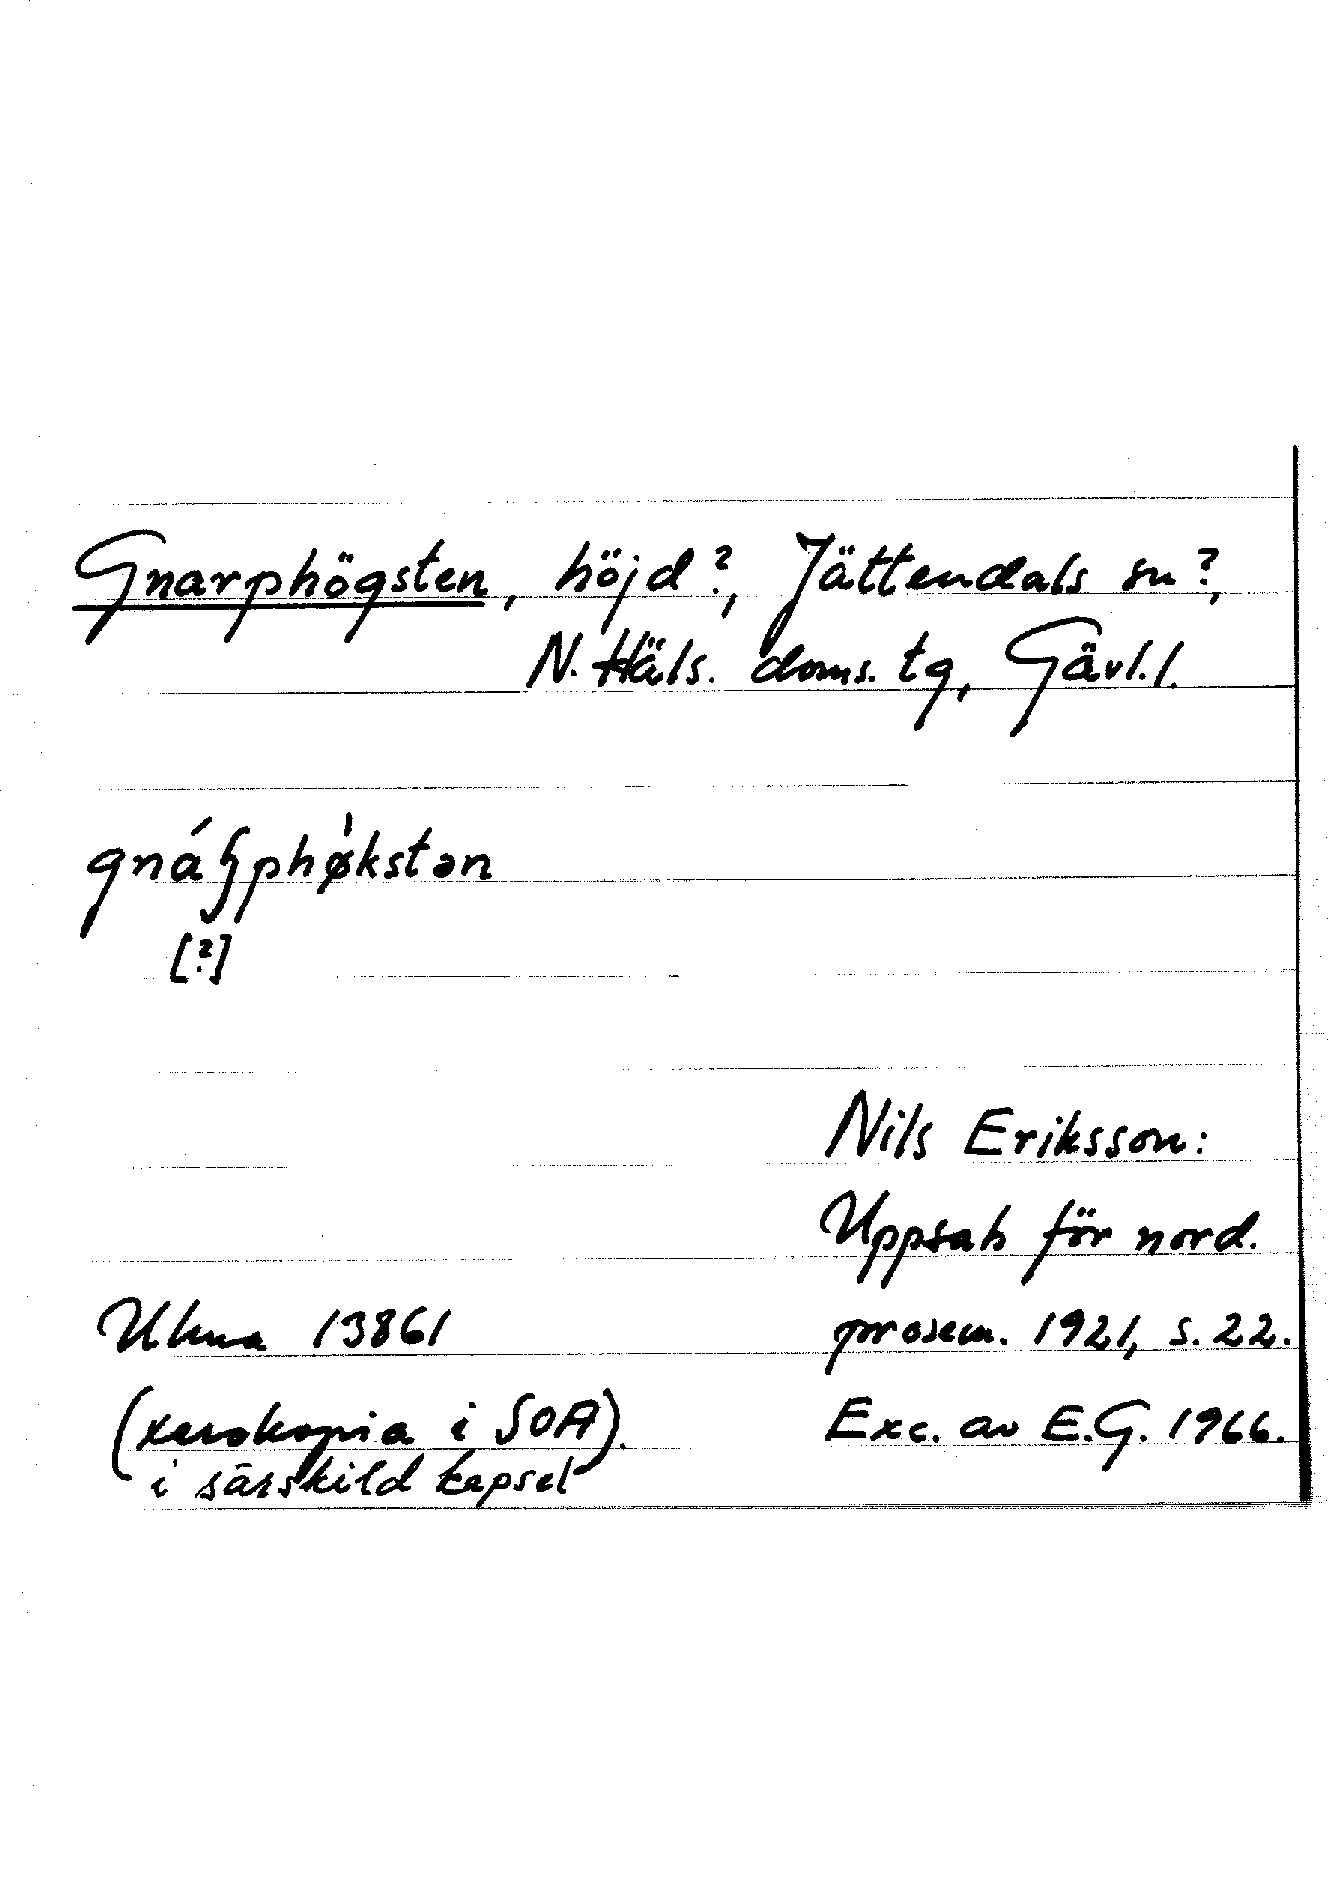 Gnarphögsten, höjd?, Jättendals sn?,
N. Häls. doms. tg, Gävl. l.
[?]
Nils Eriksson:
Uppsats för nord.
Ulma 13861
prosem. 1921, s. 22.
(xerokopia i SOA).
Exc. av E.G. 1966.
i särskild kapsel